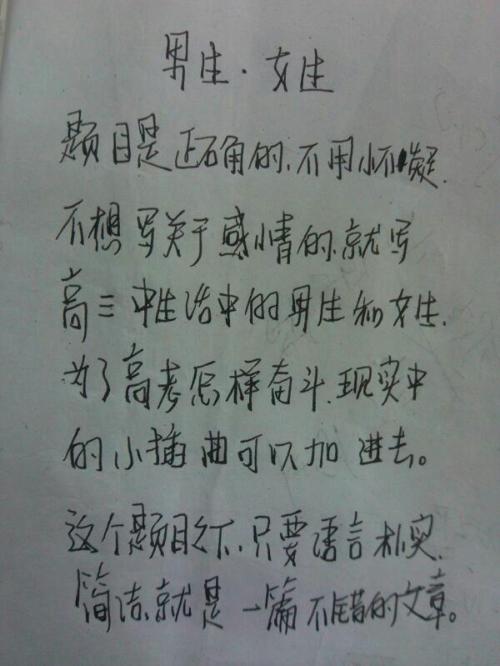 男生·女生
题目是正确的.不用怀疑.
不想写关于感情的.就写
高三中生活中的男生和女生.
为了高考怎样奋斗.现实中
的小插曲可以加进去。
这个题目之下.只要语言朴实.
简洁.就是一篇不错的文章。